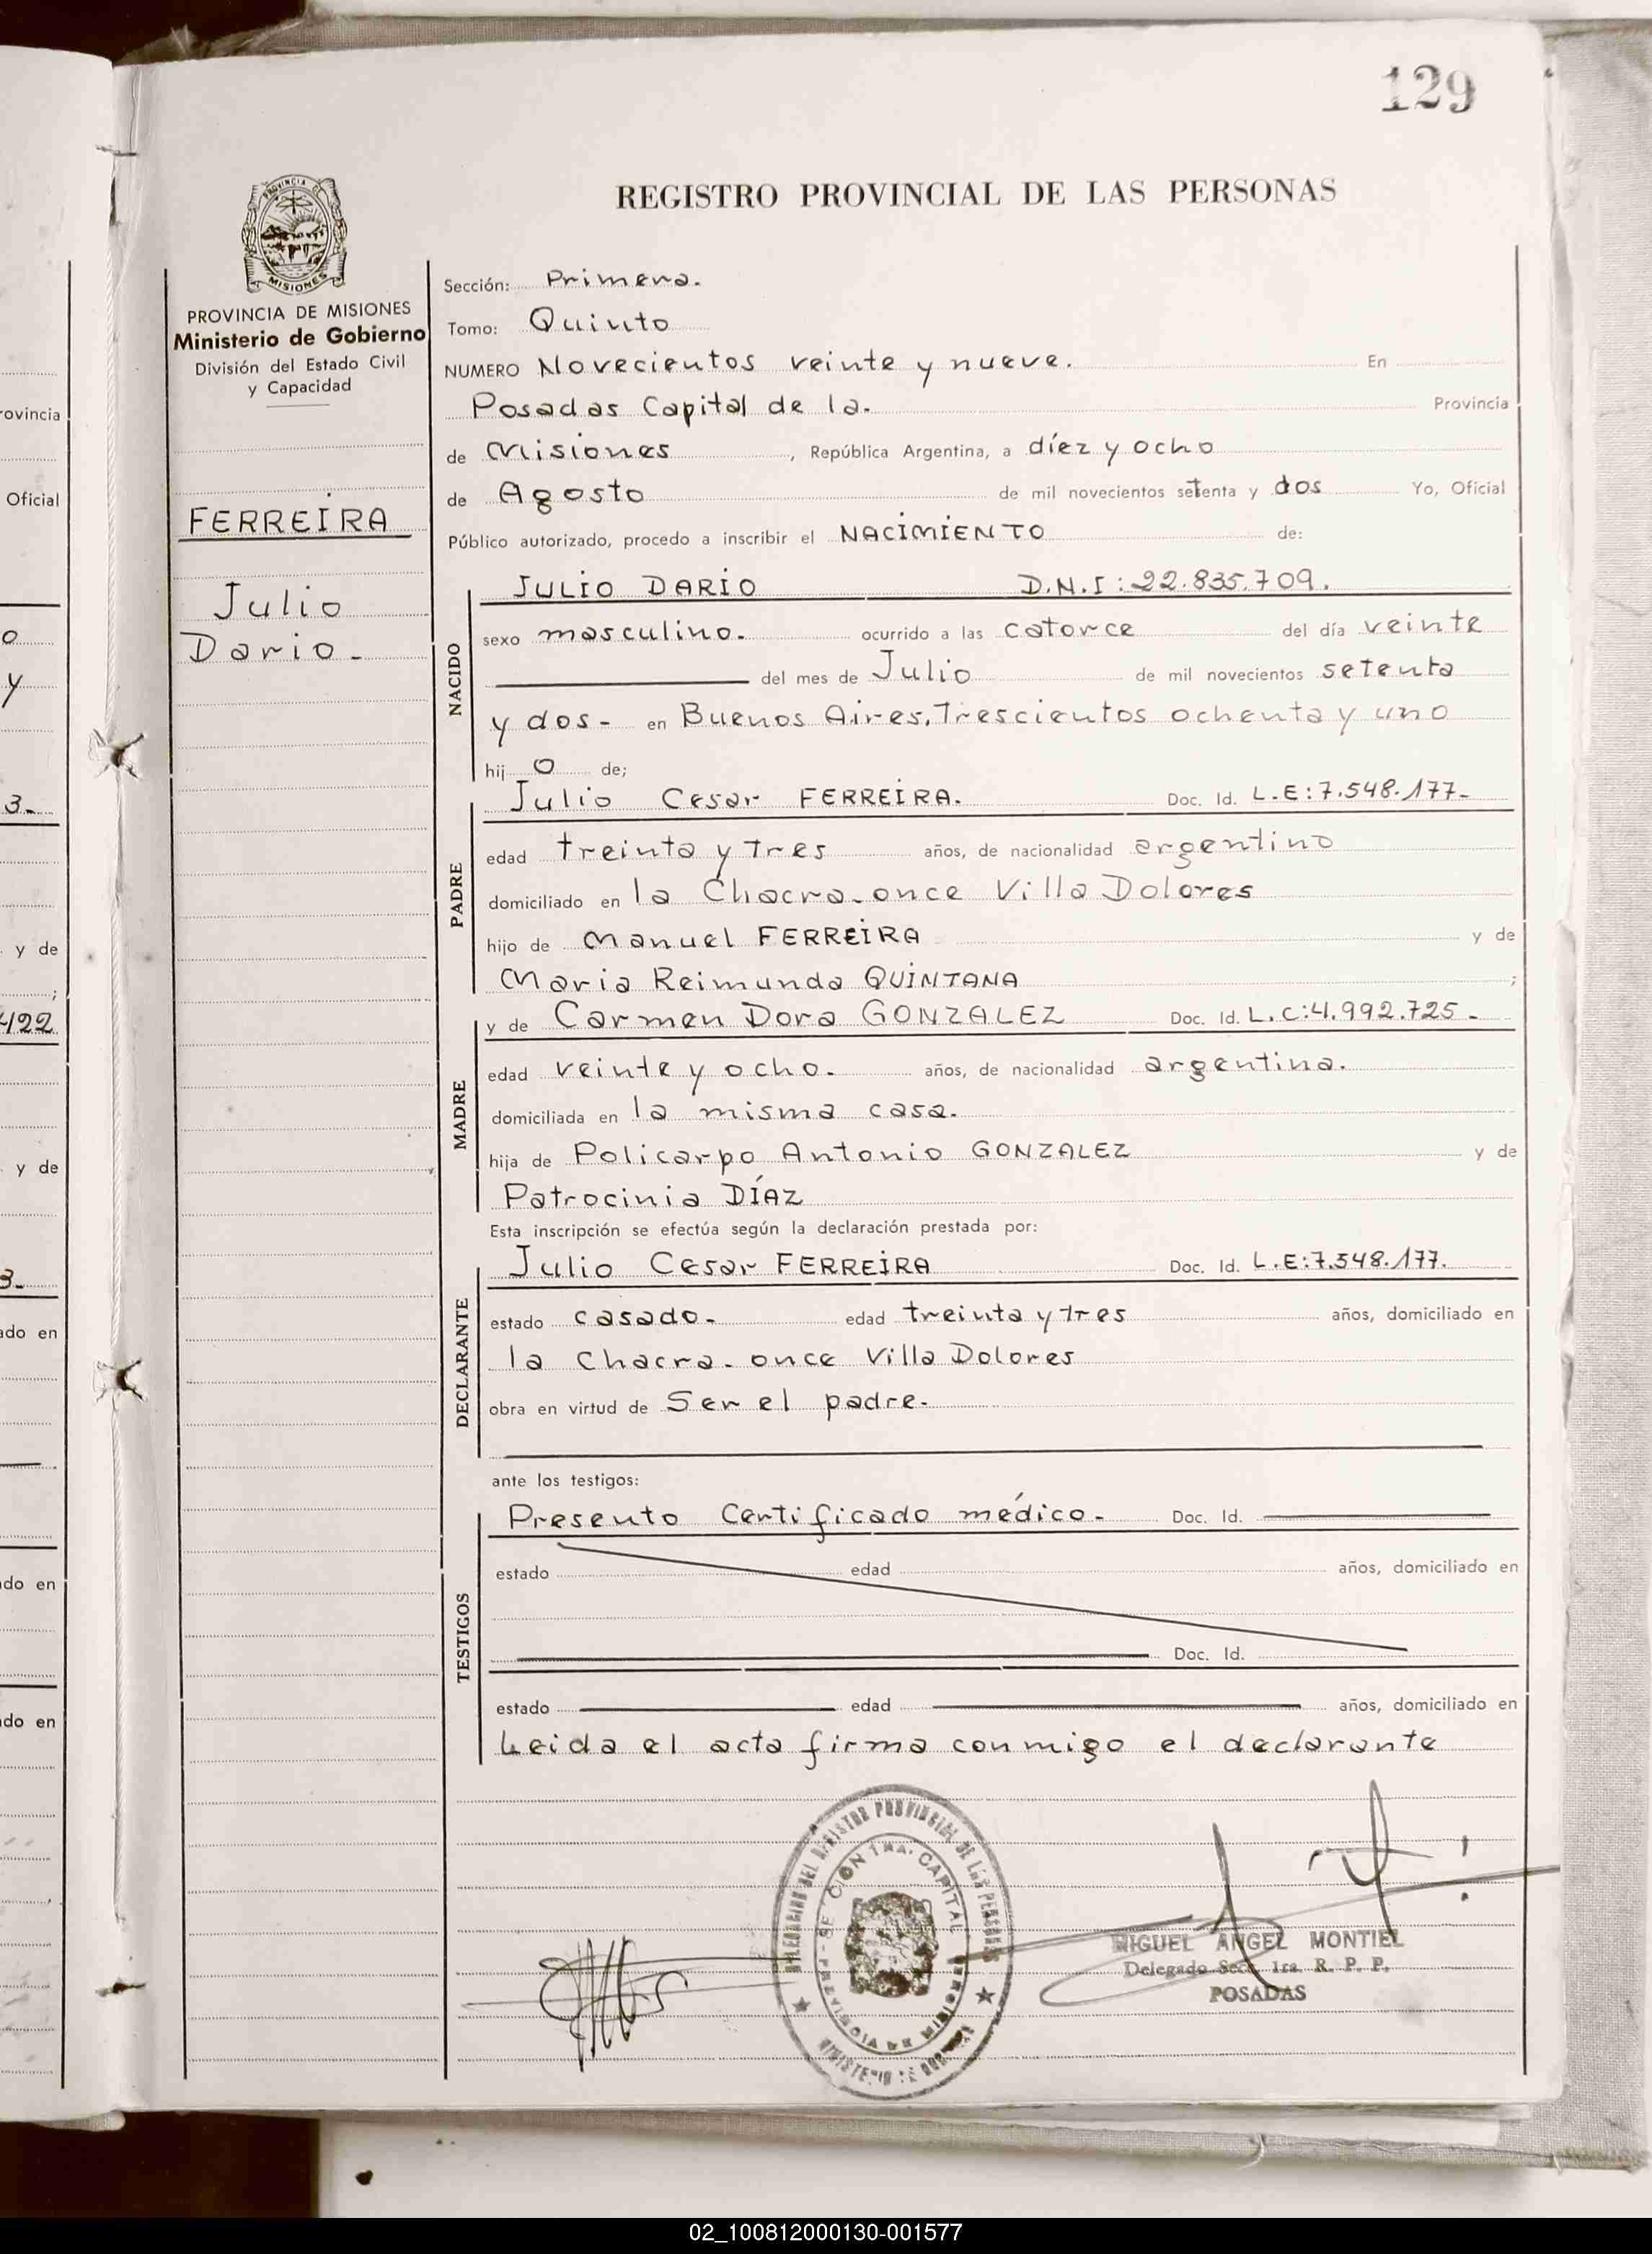 129
REGISTRO PROVINCIAL DE LAS PERSONAS
PROVINCIA DE
MISIONES
PROVINCIA DE MISIONES
Ministerio de Gobierno
División del Estado Civil
y Capacidad
FERREIRA
Julio
Dario -
Sección: Primera.
Tomo: Quinto
NUMERO Novecientos veinte y nueve. En
Posadas Capital de la. Provincia
de Misiones, República Argentina, a díez y ocho
de Agosto de mil novecientos setenta y dos Yo, Oficial
Público autorizado, procedo a inscribir el NACIMIENTO de:
NACIDO
JULIO DARIO D.N.I: 22.835.709.
sexo masculino. ocurrido a las catorce del día veinte
del mes de Julio de mil novecientos setenta
y dos - en Buenos Aires, Trescientos ochenta y uno
hij o de;
PADRE
Julio Cesar FERREIRA. Doc. Id. L.E: 7.548.177-
edad treinta y tres años, de nacionalidad argentino
domiciliado en la Chacra. once Villa Dolores
hijo de Manuel FERREIRA y de
Maria Reimunda QUINTANA ;
MADRE
y de Carmen Dora GONZALEZ Doc. Id. L.C: 4.992.725-
edad veinte y ocho. años, de nacionalidad argentina.
domiciliada en la misma casa.
hija de Policarpo Antonio GONZALEZ y de
Patrocinia DÍAZ
Esta inscripción se efectúa según la declaración prestada por:
DECLARANTE
Julio Cesar FERREIRA Doc. Id. L.E: 7.548.177.
estado casado- edad treinta y tres años, domiciliado en
la Chacra. once Villa Dolores
obra en virtud de Ser el padre.
ante los testigos:
TESTIGOS
Presento Certificado médico- Doc. Id.
estado edad años, domiciliado en
Doc. Id.
estado edad años, domiciliado en
Leida el acta firma conmigo el declarante
MIGUEL ANGEL MONTIEL
Delegado Secc. 1ra. R. P. P.
POSADAS
rovincia
Oficial
o
y
3-
y de
;
422
y de
3-
ado en
do en
do en
02_100812000130-001577